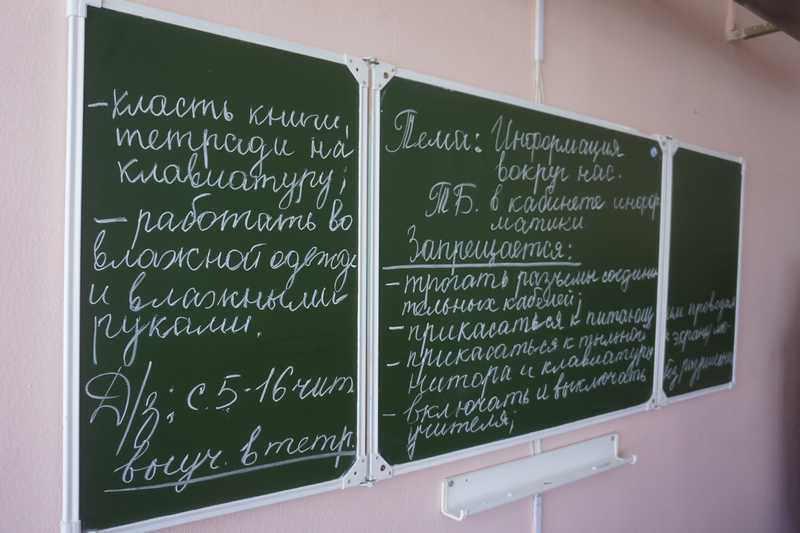 -класть книги,
тетради на
клавиатуру;
- работать во
влажной одежде
и влажными
руками.
Д/з: с. 5-16 чит
выуч. в тетр.
Тема: Информация
вокруг нас.
ТБ. в кабинете инфор
матики
Запрещается:
- трогать разъёмы соедини
тельных кабелей;
- прикасаться к питающ им проводам
- прикасаться к тыльной к экрану мо-
нитора и клавиатуры
- включать и выключать без разрешения
учителя;